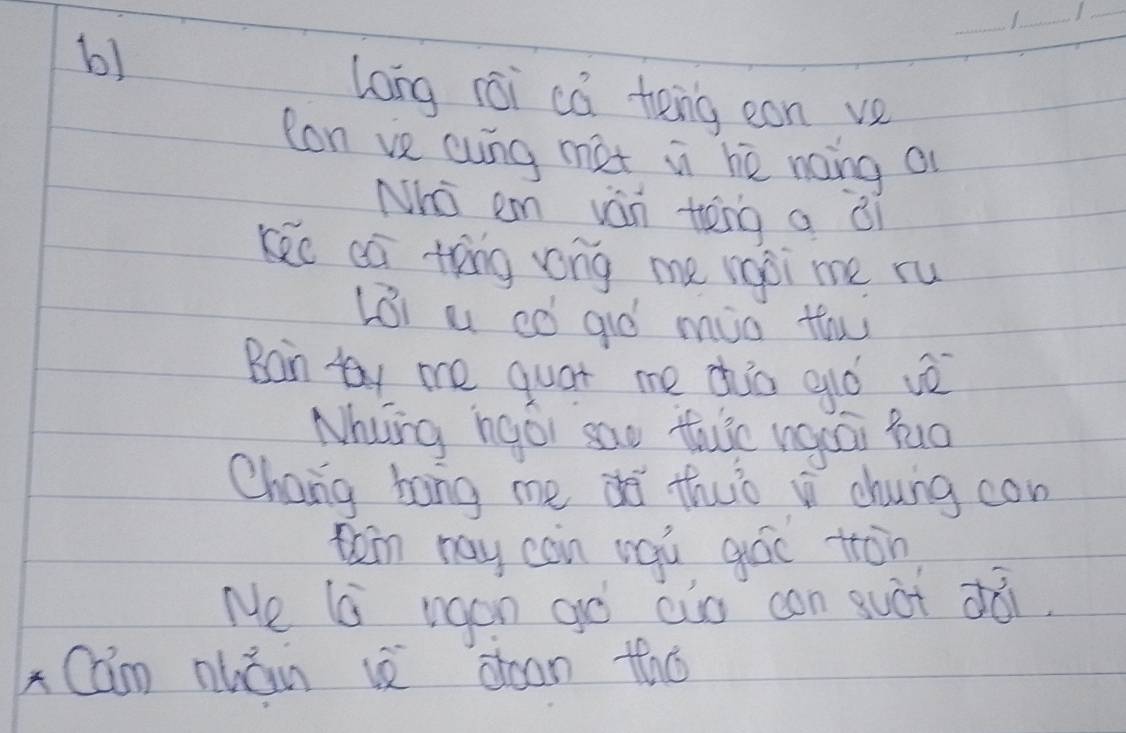 b)
Lặng rồi cả tiếng con ve
Con ve cũng mệt vì hè nắng oi
Nhà em vẫn tiếng ạ ời
Kẽo cà tiếng võng mẹ ngồi mẹ ru
Lời ru có gió mùa thu
Bàn tay mẹ quạt mẹ đưa gió về
Những ngôi sao thức ngoài kia
Chẳng bằng mẹ đã thức vì chúng con
Đêm nay con ngủ giấc tròn
Mẹ là ngọn gió của con suốt đời.
* Cảm nhận về đoạn thơ